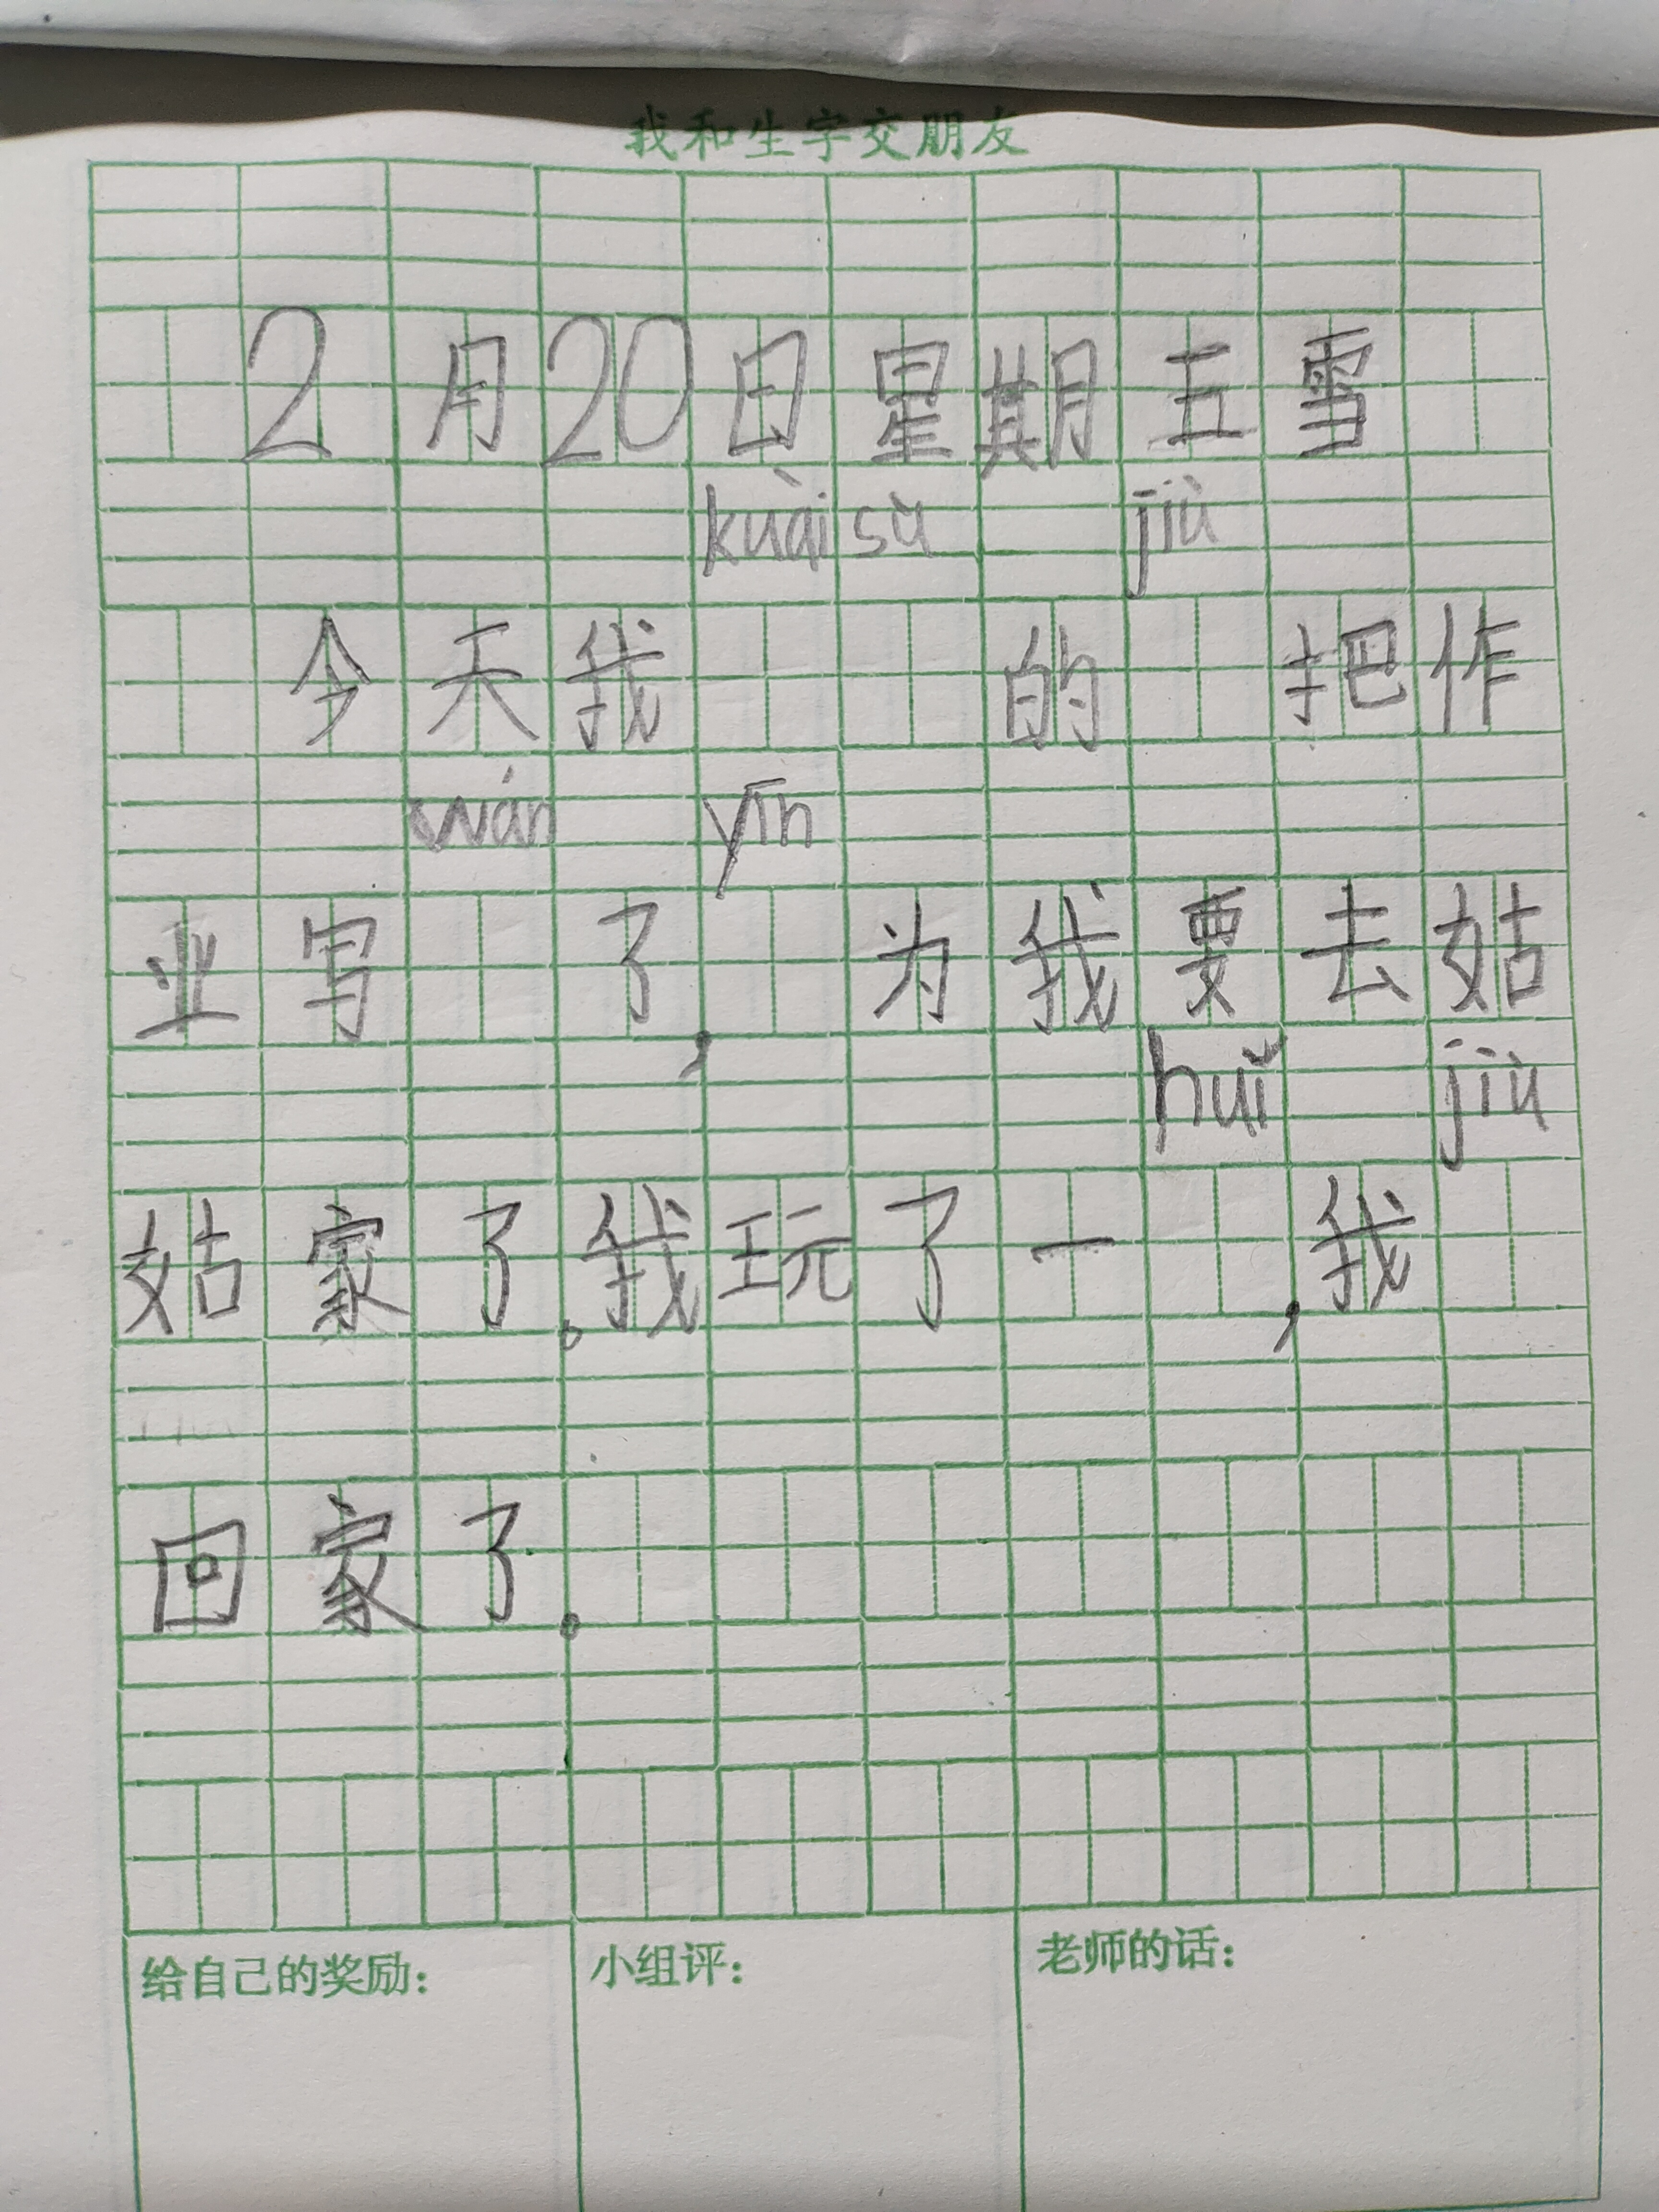 我和生字交朋友
2月20日星期五雪
kuài sù jiù
今天我 的 把作
wán yīn
业写 了, 为我要去姑
huǐ jiù
姑家了。我玩了一 ,我
回家了。
给自己的奖励: 小组评: 老师的话: